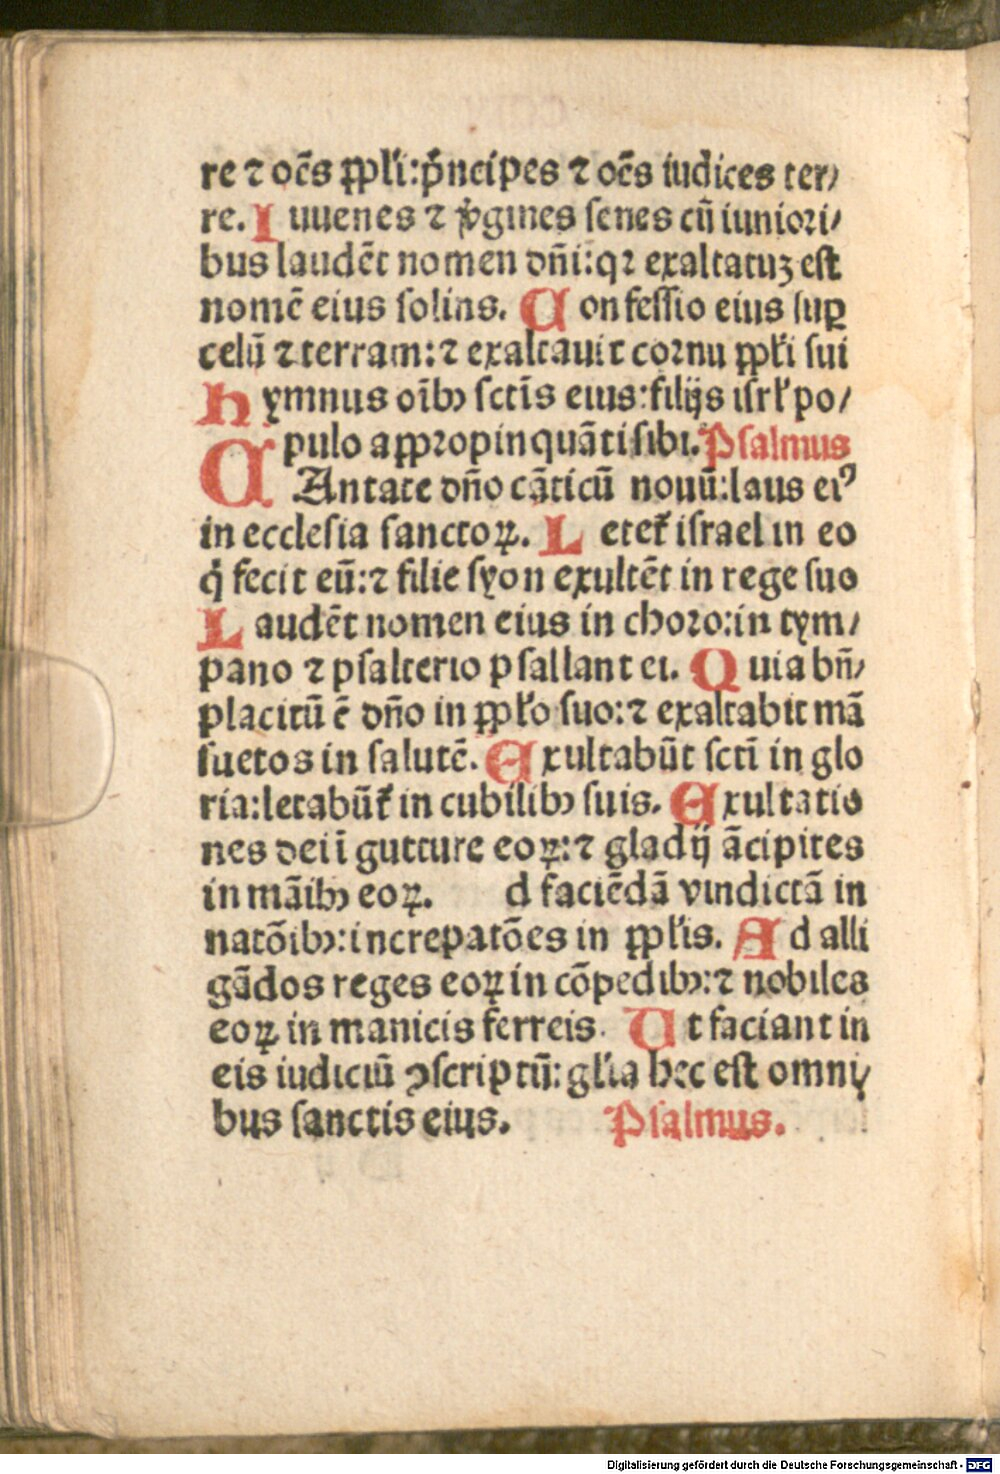 re ⁊ oēs ꝓpl'i:pͥncipes ⁊ oēs iudices ter/
re. I uuenes ⁊ v̓gines senes cū iuniori/
bus laudēt nomen dn̄i:qꝛ exaltatuʒ est
nomē eius solius. C onfessio eius suꝑ
celū ⁊ terram:⁊ exaltauit cornu ꝓpl'i sui
H ymnus oībꝫ sctīs eius:filijs isrl' po/
pulo apꝓpinquāti sibi. Psalmus
C Antate dn̄o cāticū nouū:laus eiꝰ
in ecclesia sanctoꝝ. L etet᷑ israel in eo
qͥ fecit eū:⁊ filie syon exultēt in rege suo
L audēt nomen eius in choro:in tym/
pano ⁊ psalterio psallant ei. Q uia bn̄/
placitū ē dn̄o in ꝓpl'o suo:⁊ exaltabit mā
suetos in salutē. E xultabūt sctī in glo
ria:letabūt᷑ in cubilibꝫ suis. E xultatio
nes dei ī gutture eoꝝ:⁊ gladij ācipites
in māibꝫ eoꝝ. d faciēdā vindictā in
natōibꝫ:increpatōes in ꝓpl'is. A d alli
gādos reges eoꝝ in cōpedibꝫ:⁊ nobiles
eoꝝ in manicis ferreis. U t faciant in
eis iudiciū ꝯscriptū:gl'ia hec est omni/
bus sanctis eius. Psalmus.
Digitalisierung gefördert durch die Deutsche Forschungsgemeinschaft - DFG